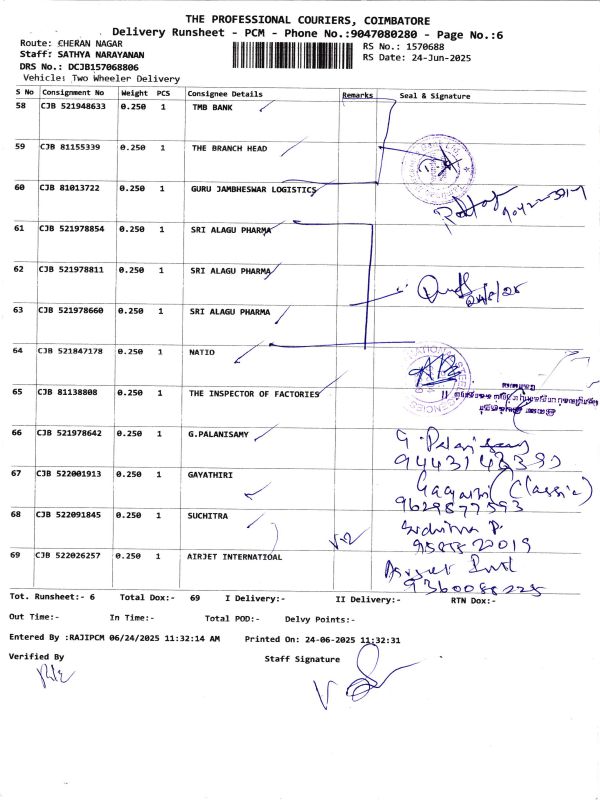 THE PROFESSIONAL COURIERS, COIMBATORE
Delivery Runsheet - PCM - Phone No.:9047080280 - Page No.:6
Route: CHERAN NAGAR
RS No.: 1570688
Staff: SATHYA NARAYANAN
RS Date: 24-Jun-2025
DRS No.: DCJB157068806
Vehicle: Two Wheeler Delivery
S No Consignment No Weight PCS Consignee Details Remarks Seal & Signature
58 CJB 521948633 0.250 1 TMB BANK
59 CJB 81155339 0.250 1 THE BRANCH HEAD
60 CJB 81013722 0.250 1 GURU JAMBHESWAR LOGISTICS
61 CJB 521978854 0.250 1 SRI ALAGU PHARMA
62 CJB 521978811 0.250 1 SRI ALAGU PHARMA
63 CJB 521978660 0.250 1 SRI ALAGU PHARMA
64 CJB 521847178 0.250 1 NATIO
65 CJB 81138808 0.250 1 THE INSPECTOR OF FACTORIES
66 CJB 521978642 0.250 1 G.PALANISAMY
G. Palanisamy
67 CJB 522001913 0.250 1 GAYATHIRI
Gayathri (Classic)
9629877593
68 CJB 522091845 0.250 1 SUCHITRA
Suchitra P.
69 CJB 522026257 0.250 1 AIRJET INTERNATIOAL
Airjet Intl
Tot. Runsheet:- 6 Total Dox:- 69 I Delivery:- II Delivery:- RTN Dox:-
Out Time:- In Time:- Total POD:- Delvy Points:-
Entered By :RAJIPCM 06/24/2025 11:32:14 AM Printed On: 24-06-2025 11:32:31
Verified By Staff Signature